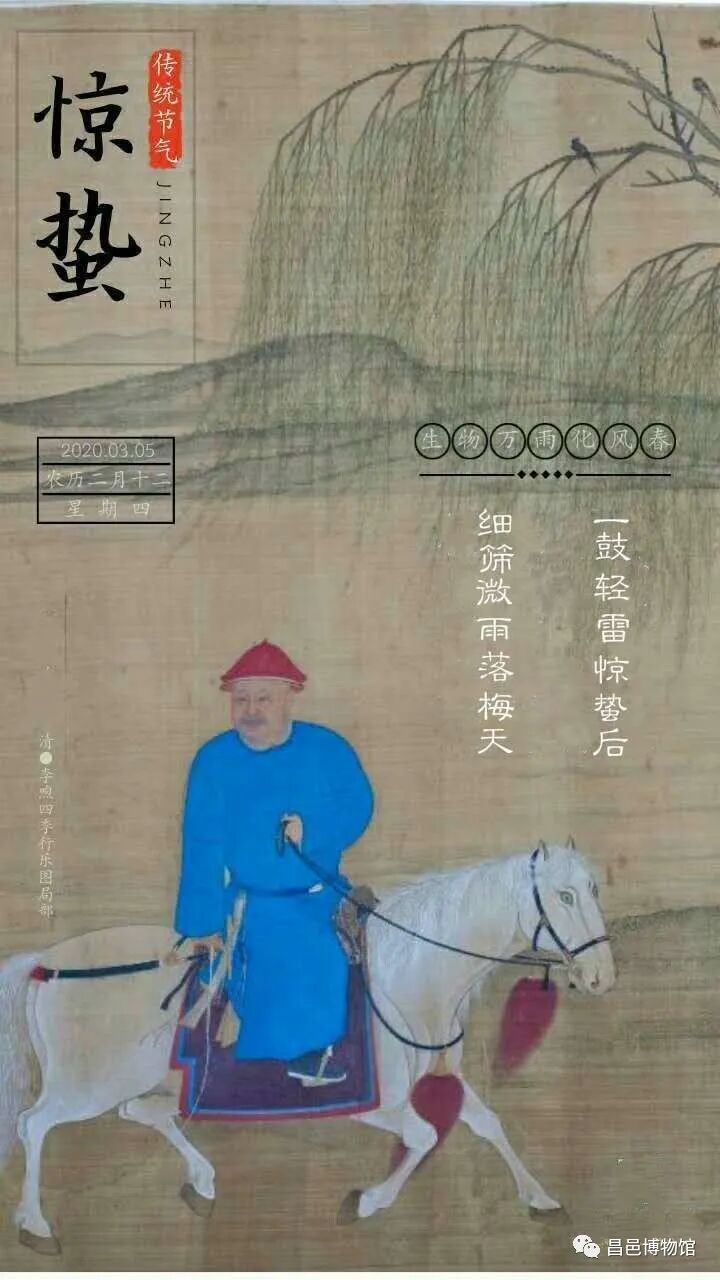 惊蛰
传统节气
JINGZHE
2020.03.05
农历二月十二
星期四
春风化雨万物生
一鼓轻雷惊蛰后
细筛微雨落梅天
清●李煦四季行乐图局部
昌邑博物馆